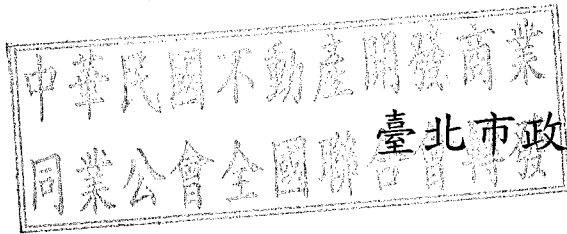 中華民國不動產開發商業
同業公會全國聯合會轉發
臺北市政